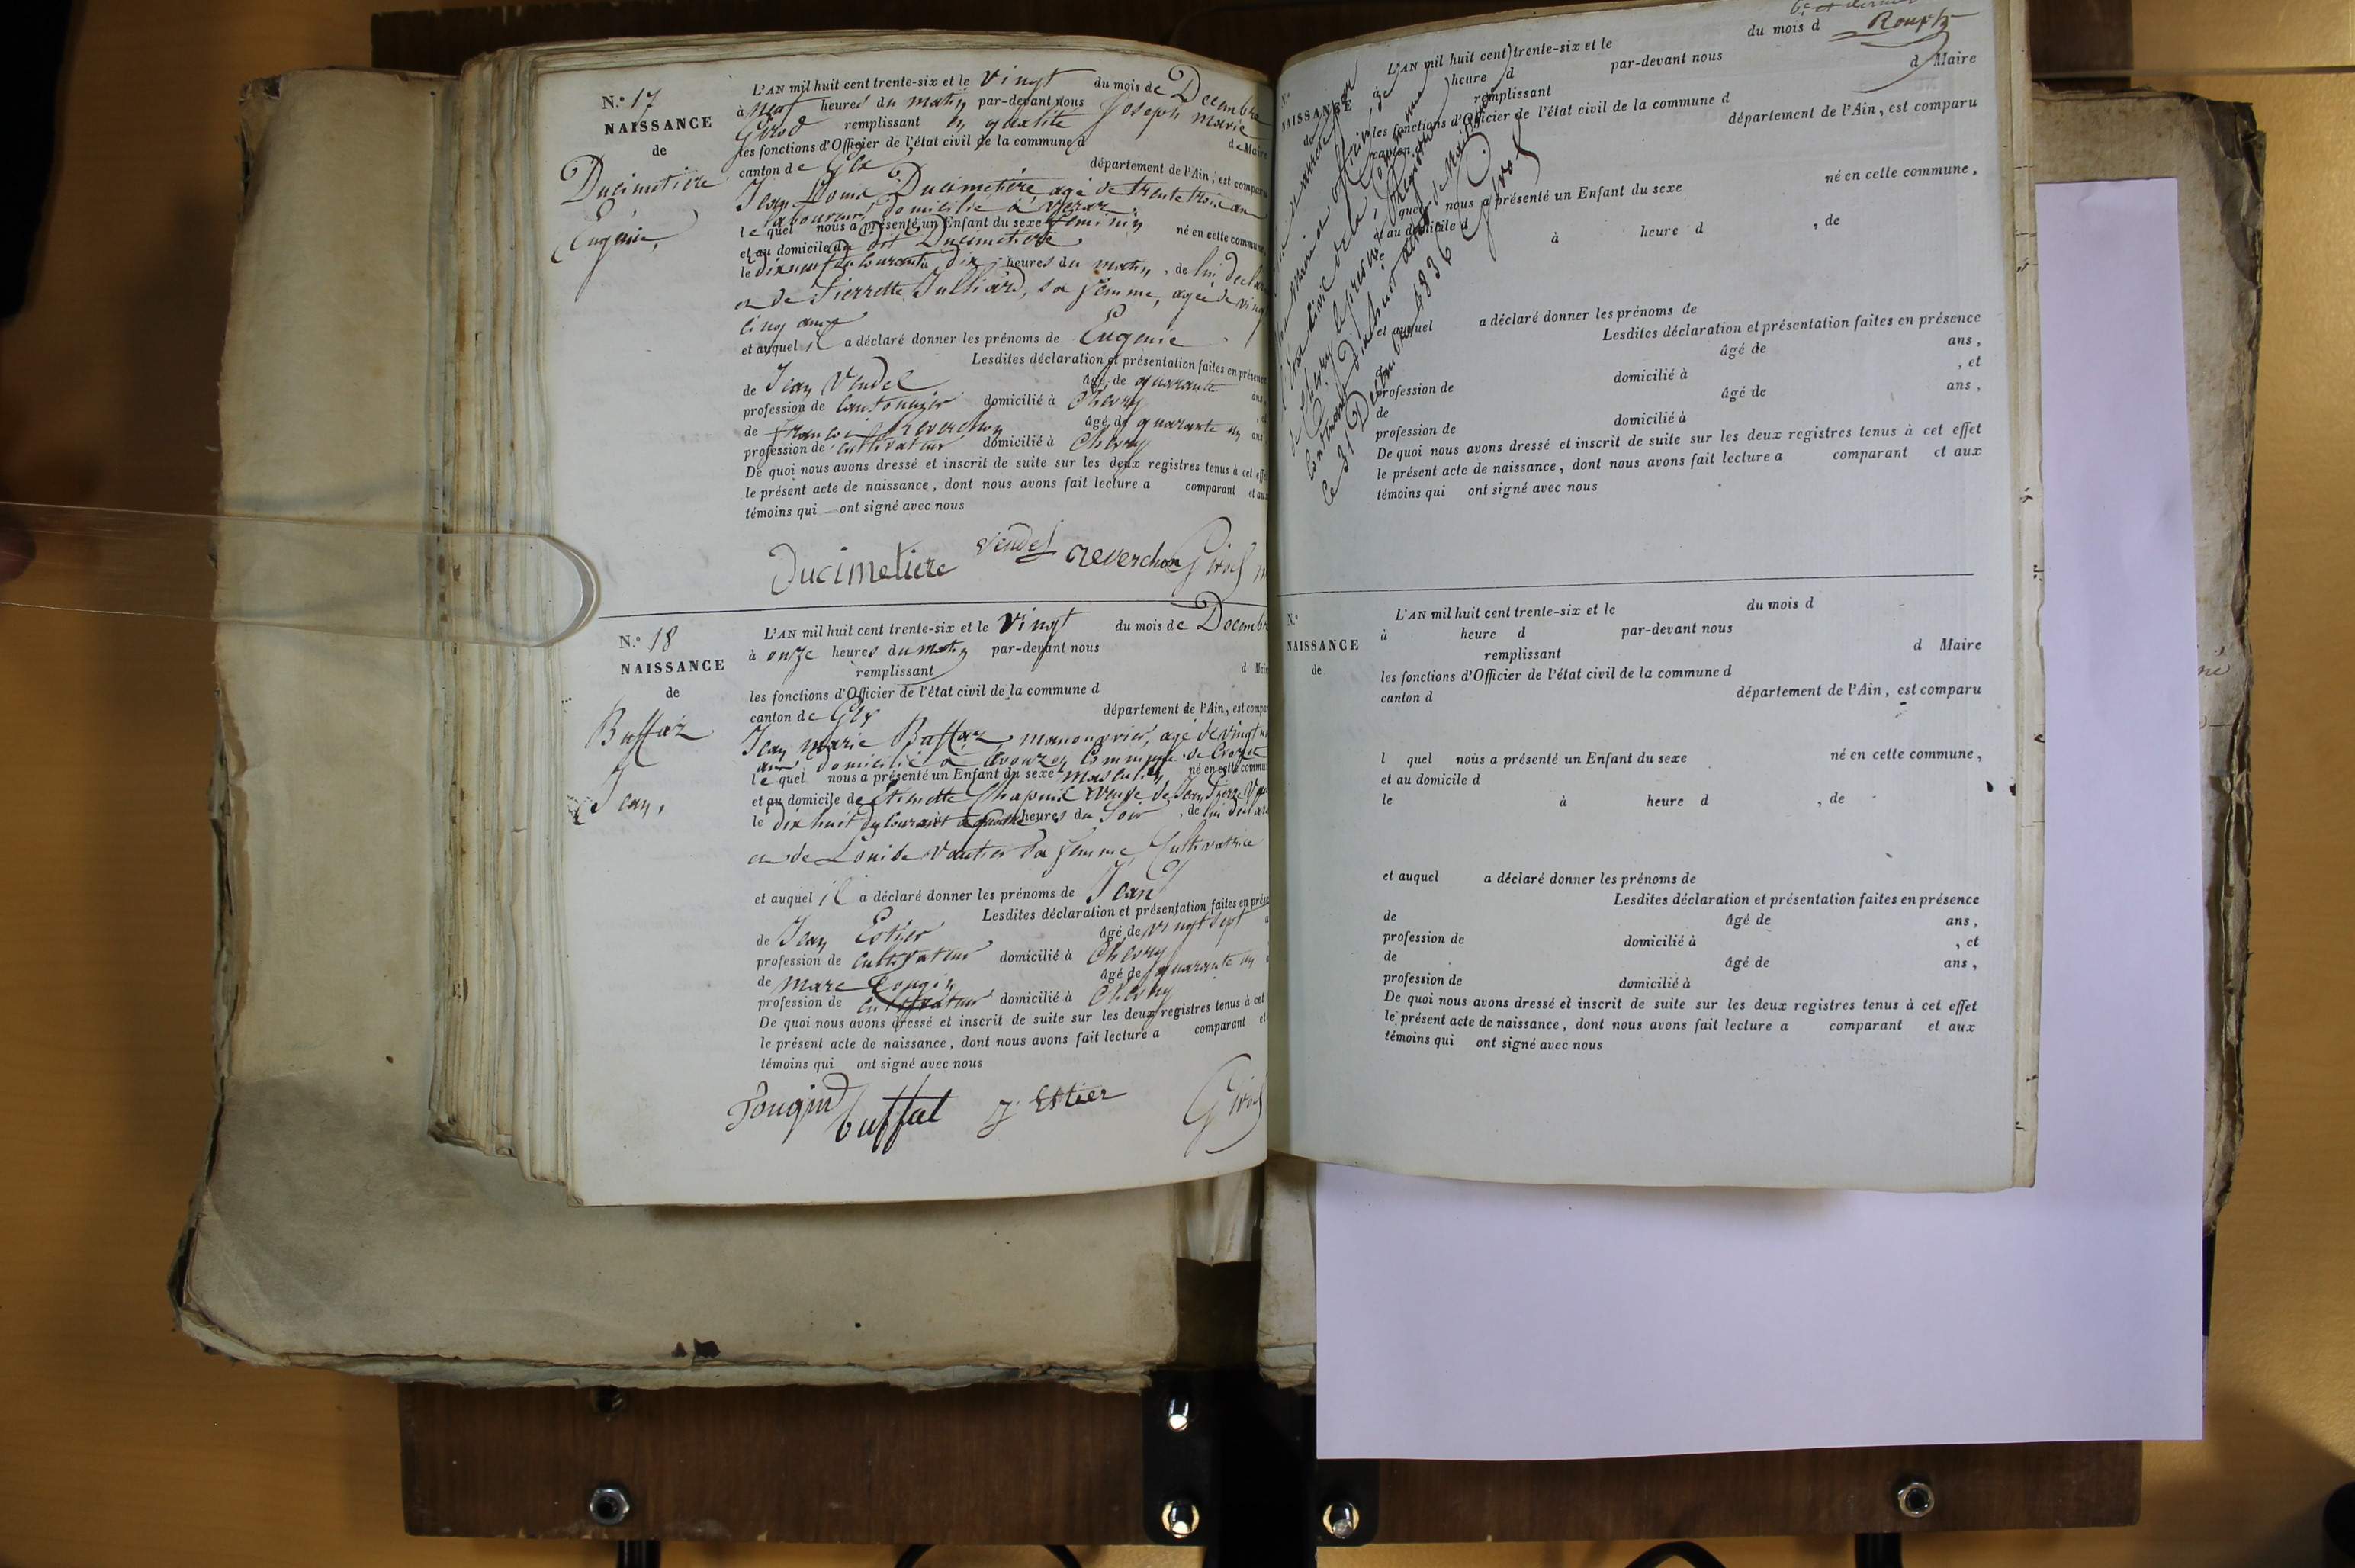 N.° 17
NAISSANCE
de
Ducimetière
Eugénie,
L'AN mil huit cent trente-six et le vingt du mois de Décembre
à neuf heures du matin par-devant nous Joseph Marie
Girod remplissant en qualité de Maire
les fonctions d'Officier de l'état civil de la commune d
canton de Gex département de l'Ain, est comparu
Jean Louis Ducimetière agé de trente trois ans
laboureur, domicilié à Veraz
le quel nous a présenté un Enfant du sexe féminin né en cette commune
et au domicile du dit Ducimetière
le dix neuf du courant à dix heures du matin, de lui déclarant
et de Pierrette Julliard, sa femme, agée de vingt
cinq ans
et auquel il a déclaré donner les prénoms de Eugénie
Lesdites déclaration et présentation faites en présence
de Jean Vendel âgé de quarante ans
profession de Cantonnier domicilié à Chevry
de françois Reverchon âgé de quarante un ans
profession de Cultivateur domicilié à Chevry
De quoi nous avons dressé et inscrit de suite sur les deux registres tenus à cet effet
le présent acte de naissance, dont nous avons fait lecture a comparant et aux
témoins qui ont signé avec nous
Ducimetiere Vendel Reverchon Girod
N.° 18
NAISSANCE
de
Buffaz
Jean,
L'AN mil huit cent trente-six et le vingt du mois de Décembre
à onze heures du matin par-devant nous
remplissant d Maire
les fonctions d'Officier de l'état civil de la commune d
canton de Gex département de l'Ain, est comparu
Jean Marie Buffaz, manouvrier, agé de vingt
ans domicilié à Avouzon Commune de Crozet
le quel nous a présenté un Enfant du sexe masculin né en cette commune
et au domicile de Etiennette Chapuis veuve de Jean Pierre
le dix huit du courant à quatre heures du Soir, de lui déclarant
et de Louise Vautier sa femme, Cultivatrice
et auquel il a déclaré donner les prénoms de Jean
Lesdites déclaration et présentation faites en présence
de Jean Estier âgé de vingt sept
profession de cultivateur domicilié à Chevry
de Marc Fougin âgé de quarante un
profession de cultivateur domicilié à Chevry
De quoi nous avons dressé et inscrit de suite sur les deux registres tenus à cet
le présent acte de naissance, dont nous avons fait lecture a comparant et
témoins qui ont signé avec nous
Fougin buffat J. Estier Girod
6e et dernier
Roup
L'AN mil huit cent trente-six et le du mois d
heure d par-devant nous
remplissant d Maire
les fonctions d'Officier de l'état civil de la commune d
canton département de l'Ain, est comparu
quel nous a présenté un Enfant du sexe né en cette commune,
et au domicile d
à heure d , de
et auquel a déclaré donner les prénoms de
Lesdites déclaration et présentation faites en présence
âgé de ans,
profession de domicilié à , et
de âgé de ans,
profession de domicilié à
De quoi nous avons dressé et inscrit de suite sur les deux registres tenus à cet effet
le présent acte de naissance, dont nous avons fait lecture a comparant et aux
témoins qui ont signé avec nous
N.°
NAISSANCE
de
arrêté par
Maire officier de
l'état civil de la Commune
de Chevry le présent Registre
Contenant dix huit actes de Naissance
Ce 31 Décembre 1836 Girod
N.°
NAISSANCE
de
L'AN mil huit cent trente-six et le du mois d
à heure d par-devant nous
remplissant d Maire
les fonctions d'Officier de l'état civil de la commune d
canton d département de l'Ain, est comparu
l quel nous a présenté un Enfant du sexe né en cette commune,
et au domicile d
le à heure d , de
et auquel a déclaré donner les prénoms de
Lesdites déclaration et présentation faites en présence
de âgé de ans,
profession de domicilié à , et
de âgé de ans,
profession de domicilié à
De quoi nous avons dressé et inscrit de suite sur les deux registres tenus à cet effet
le présent acte de naissance, dont nous avons fait lecture a comparant et aux
témoins qui ont signé avec nous